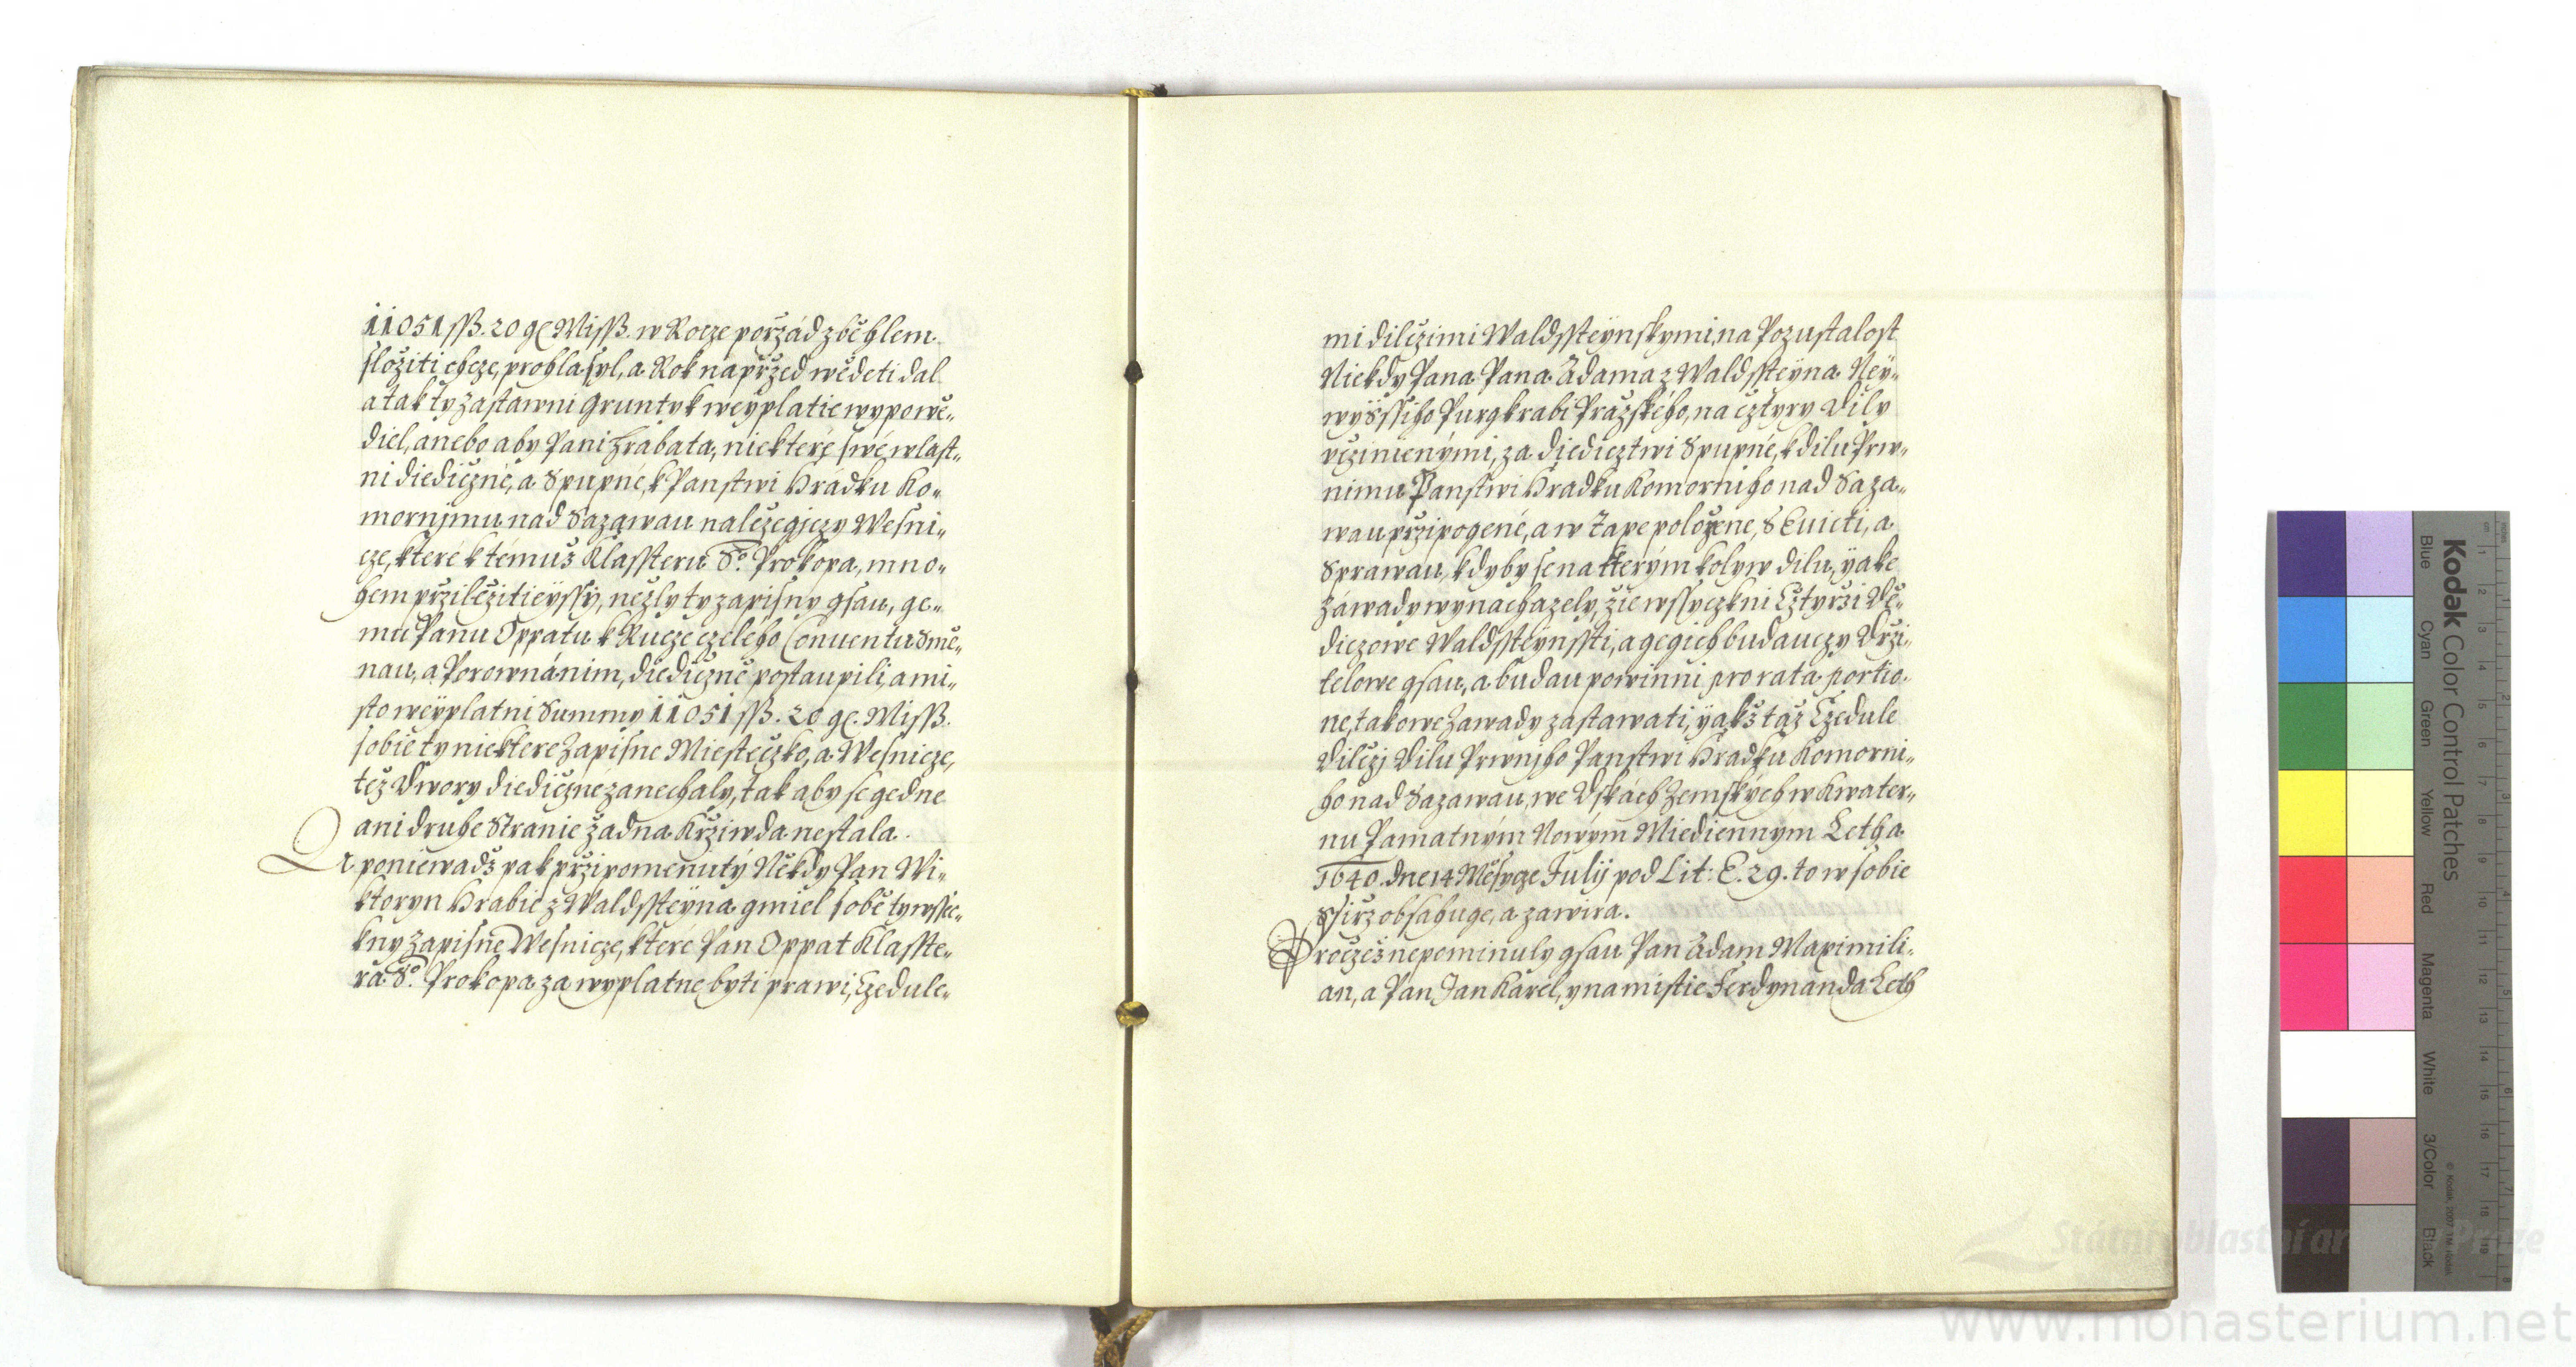 11051 ßß. 20 gℓ Mißß. w Rocze pořzád zběhlem
složiti chcze, prohlasyl, a Rok napřzed wědeti dal
a tak ty zastawni Grunty k weyplatie wypowě„
diel, anebo aby Pani Hrabata, niektere swé wlast„
ni diediczné, a Spupné, k Panstwi Hrádku Ko„
mornjmu nad Sazawau naležegjczy Wesni„
cze, které k témuž Klassteru S.º Prokopa, mno„
hem přziležitieyssy, nežly ty zapisny gsau, ge„
mu Panu Oppatu k Rucze czelého Conuentu Smě„
nau, a Porownánim, diediczně postaupili, a mi„
sto weyplatni Summy 11051 ßß. 20 gℓ. Mißß.
sobie ty niektere Zapisne Miesteczko, a Wesnicze,
též Dwory diediczné zanechaly, tak aby se gedne
ani druhe Stranie žadna Křziwda nestala.
A poniewadž pak przipomenutý Někdy Pan Wi„
ktoryn Hrabie z Waldssteyna gmiel sobě ty wssec„
kny Zapisne Wesnicze, které Pan Oppat Klasste„
ra S.º Prokopa za wyplatne byti prawi, Czedule„
mi dilczimi Waldssteynskymi, na Pozustalost
Niekdy Pana Pana Adama z Waldssteyna Ney„
wyšssiho Purgkrabi Pražského, na cztyry Dily
vczinenými, za diedicztwi Spupné, k dilu Prw„
nimu Panstwi Hradku Komorniho nad Saza„
wau przipogené, a w Tape položene, S Euicti, a
Sprawau, kdyby se na kterým kolyw dilu, yake
Záwady wynachazely, žie wssyczkni Cztyrži Dě„
diczowe Waldssteynssti, a gegich budauczy Drži„
telowe gsau, a budau powinni pro rata portio„
ne, takowe Zawady zastawati, yakž táž Czedule
Dilczj Dilu Prwnjho Panstwi Hradku Komorni„
ho nad Sazawau, we Dskách Zemských w Kwater„
nu Pamatným Nowým Miedienným Letha
1640. dne 14 Měsycze Julij pod Lit: E. 29. to w sobie
Ssiřz obsahuge, a zawira.
Pročež nepominuly gsau Pan Adam Maximili„
an, a Pan Jan Karel, y na mistie Ferdynanda Leth
Kodak Color Control Patches
Blue
Cyan
Green
Yellow
Red
Magenta
White
3/Color
Black
www.monasterium.net